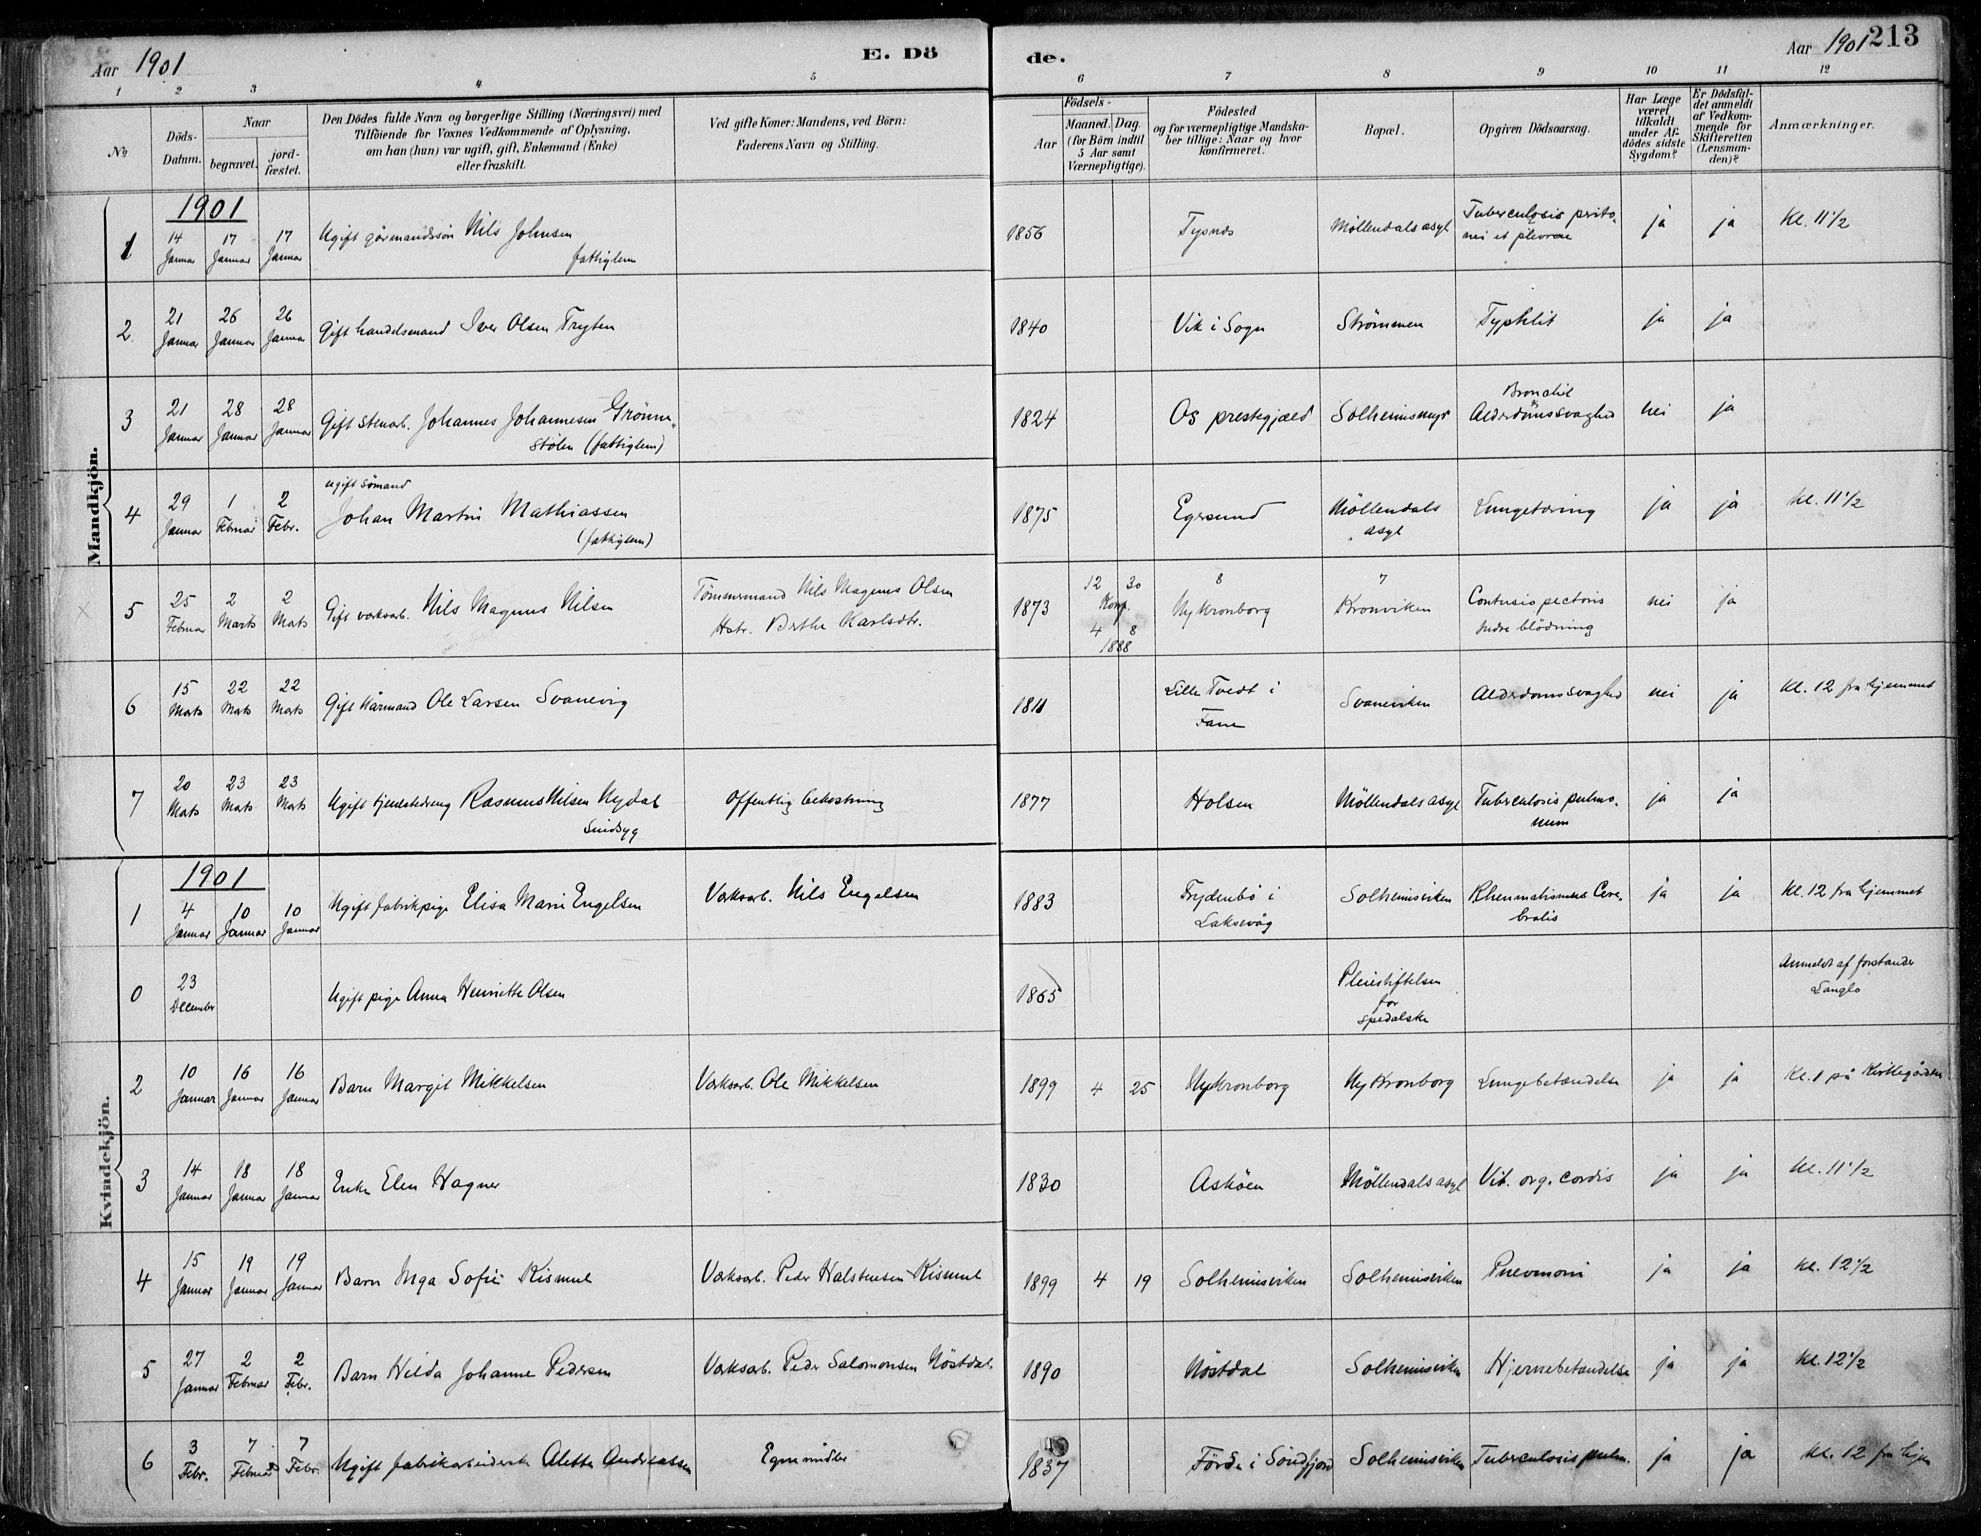 Aar 1901 E. Dö
de. Aar 1901 213
1 2 3 4 5 6 7 8 9 10 11 12
No
Döds-Datum.
Naar
begravet.
jord-fæstet.
Den Dödes fulde Navn og borgerlige Stilling (Næringsvei) med
Tilföiende for Voxnes Vedkommende af Oplysning,
om han (hun) var ugift, gift, Enkemand (Enke)
eller fraskilt.
Ved gifte Koner: Mandens, ved Börn:
Faderens Navn og Stilling.
Födsels-
Aar
Maaned. Dag.
(for Börn indtil
5 Aar samt
Værnepligtige).
Födested
og for værnepligtige Mandska-
ber tillige: Naar og hvor
konfirmeret.
Bopæl.
Opgiven Dödsaarsag.
Har Læge
været
tilkaldt
under Af-
dödes sidste
Sygdom?
Er Dödsfal-
det anmeldt
af Vedkom-
mende for
Skifteretten
(Lensman-
den)?
Anmærkninger.
Mandkjön.
1901
1 14 Januar 17 Januar 17 Januar Ugift gårmandssön Nils Johnsen fattiglem 1856 Tysnes Möllendals asyl Tuberculosis peritonei et pleurae ja ja Kl. 11 1/2
2 21 Januar 26 Januar 26 Januar Gift handelsmand Iver Olsen Tryten 1840 Vik i Sogn Strömmen Typhlit ja ja
3 21 Januar 28 Januar 28 Januar Gift stenarb. Johannes Johannesen Grönnestölen (fattiglem) 1824 Os prestegjæld Solheimsmyr Bronchit & Alderdomssvaghed nei ja
4 29 Januar 1 Februar 2 Febr. ugift sömand Johan Martin Mathiassen (fattiglem) 1875 Egersund Möllendals asyl Lungetæring ja ja kl. 11 1/2
5 25 Februar 2 Marts 2 Marts Gift værksarb. Nils Magnus Nilsen Tömmermand Nils Magnus Olsen Hstr. Berthe Karlsdtr. 1873 12 30 Konf. 4 8 1888 8 Ny Kronborg 7 Kronviken Contusio pectoris Indre blödning nei ja
6 15 Marts 22 Marts 22 Marts Gift kårmand Ole Larsen Svanevig 1811 Lille Tvedt i Fane Svaneviken Alderdomssvaghed nei ja kl. 12 fra hjemmet
7 20 Marts 23 Marts 23 Marts Ugift tjenestedreng Rasmus Nilsen Nydal Sindsyg Offentlig bekostning 1877 Holsen Möllendals asyl Tuberculosis pulmonum ja ja
Kvindekjön.
1901
1 4 Januar 10 Januar 10 Januar Ugift fabrikpige Elisa Marie Engelsen Værksarb. Nils Engelsen 1883 Frydenbö i Laksevåg Solheimsviken Rheumatismus Cerebralis ja ja kl. 12 fra hjemmet
0 23 December Ugift pige Anna Henriette Olsen 1865 Pleiestiftelsen for spedalske Anmeldt af forstander Langlo
2 10 Januar 16 Januar 16 Januar Barn Margit Mikkelsen Værksarb. Ole Mikkelsen 1899 4 25 Ny Kronborg Ny Kronborg Lungebetændelse ja ja Kl. 1 på Kirkegården
3 14 Januar 18 Januar 18 Januar Enke Elen Hagner 1830 Asköen Möllendals asyl Vit. org. cordis ja ja kl. 11 1/2
4 15 Januar 19 Januar 19 Januar Barn Inga Sofie Kismul Værksarb. Peder Halstensen Kismul 1899 4 19 Solheimsviken Solheimsviken Pnevmoni ja ja kl. 12 1/2
5 27 Januar 2 Februar 2 Febr. Barn Hilda Johanne Pedersen Værksarb. Peder Salomonsen Nöstdal 1890 Nöstdal Solheimsviken Hjernebetændelse ja ja kl. 12 1/2
6 3 Febr. 7 Februar 7 Febr. Ugift fabrikarbeiderske Alette Andreassen Egne midler 1837 Förde i Söndfjord Solheimsviken Tuberculosis pulm. ja ja kl. 12 fra hjem